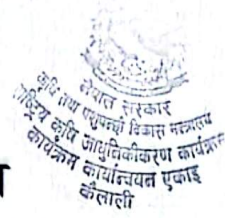 नेपाल सरकार
कृषि तथा पशुपन्छी विकास मन्त्रालय
राष्ट्रिय कृषि आधुनिकीकरण कार्यक्रम
कार्यक्रम कार्यान्वयन एकाइ
कैलाली